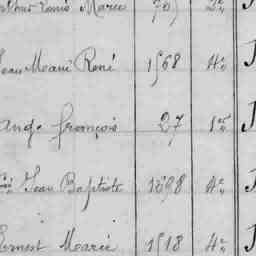 Louis Marie 707 2e
Jean Marie René 1568 4e
Ange François 27 1er
Jean Baptiste 1898 4e
Ernest Marie 1518 4e